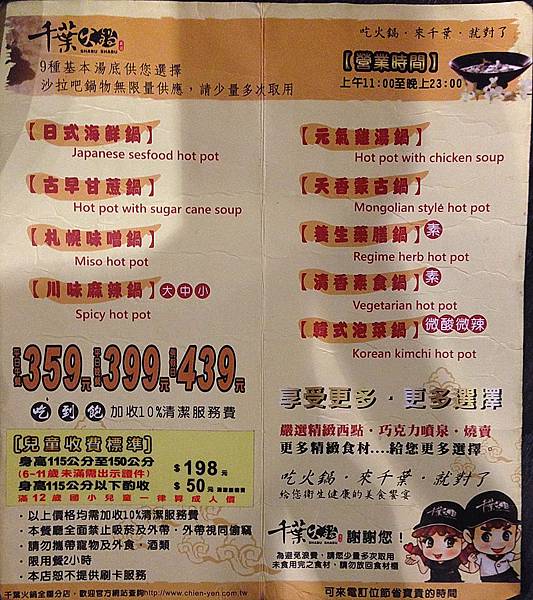 千葉火鍋
SHABU SHABU
9種基本湯底供您選擇
沙拉吧鍋物無限量供應，請少量多次取用
【日式海鮮鍋】
Japanese sesfood hot pot
【古早甘蔗鍋】
Hot pot with sugar cane soup
【札幌味噌鍋】
Miso hot pot
【川味麻辣鍋】大中小
Spicy hot pot
359元
399元
439元
吃到飽 加收10%清潔服務費
【兒童收費標準】
身高115公分至150公分
(6-11歲未滿需出示證件)
$198元
身高115公分以下酌收
$50元
滿12歲國小兒童一律算成人價
·以上價格均需加收10%清潔服務費
·本餐廳全面禁止吸菸及外帶，外帶視同偷竊
·請勿攜帶寵物及外食、酒類
·限用餐2小時
·本店恕不提供刷卡服務
千葉火鍋全國分店，歡迎官方網站查詢http://www.chien-yen.com.tw
吃火鍋·來千葉·就對了
【營業時間】
上午11:00至晚上23:00
【元氣雞湯鍋】
Hot pot with chicken soup
【天香蒙古鍋】
Mongolian style hot pot
【養生藥膳鍋】素
Regime herb hot pot
【清香素食鍋】素
Vegetarian hot pot
【韓式泡菜鍋】微酸微辣
Korean kimchi hot pot
享受更多·更多選擇
嚴選精緻西點·巧克力噴泉·燒賣
更多精緻食材....給您更多選擇
吃火鍋·來千葉·就對了
給您衛生健康的美食饗宴
千葉火鍋
SHABU SHABU
謝謝您！
為避免浪費，請您少量多次取用
未食用完之食材，請勿放回食材櫃
可來電訂位節省寶貴的時間